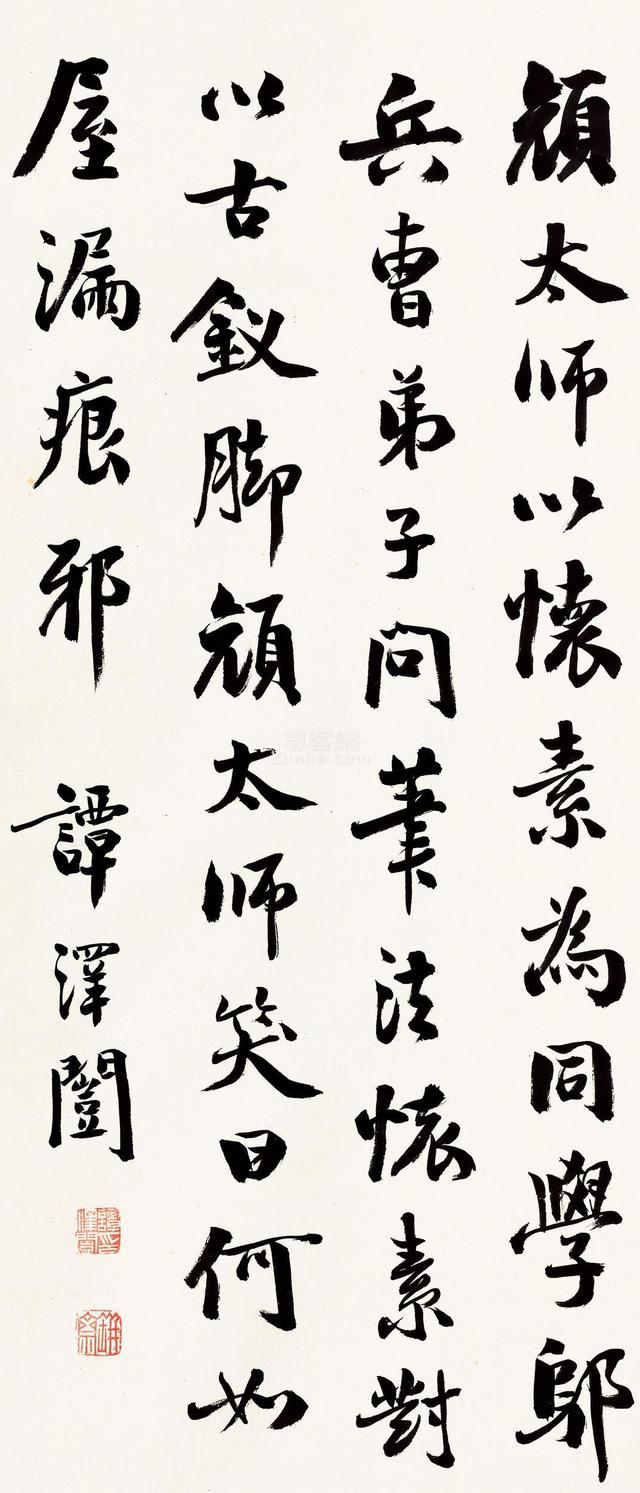 顏太师以懷素為同學鄔
兵曹弟子問筆法懷素對
以古釵脚顏太师笑曰何如
屋漏痕邪 譚澤闓
譚澤闓印
尊客網
Zunke.com